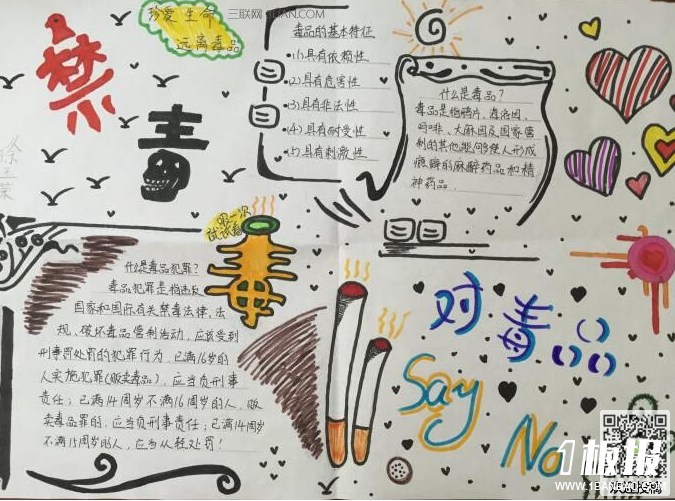 珍爱生命
远离毒品
三联网 3LIAN.COM
禁
毒
毒品的基本特征
(1)具有依赖性
(2)具有危害性
(3)具有非法性
(4)具有耐受性
(5)具有刺激性
什么是毒品?
毒品是指鸦片、海洛因、
吗啡、大麻因及国家管
制的其他能够使人形成
瘾癖的麻醉药品和精
神药品.
毒
什么是毒品犯罪?
毒品犯罪是指违反
国家和国际有关禁毒法律、法
规、破坏毒品管制活动,应该受到
刑事罚处罚的犯罪行为,已满16岁的
人实施犯罪(贩卖毒品),应当负刑事
责任;已满14周岁不满16周岁的人,贩
卖毒品罪的,应当负刑事责任;已满14周岁
不满18周岁的人,应当从轻处罚!
对毒品
Say
No
1板报
WWW.1BANBAO.COM